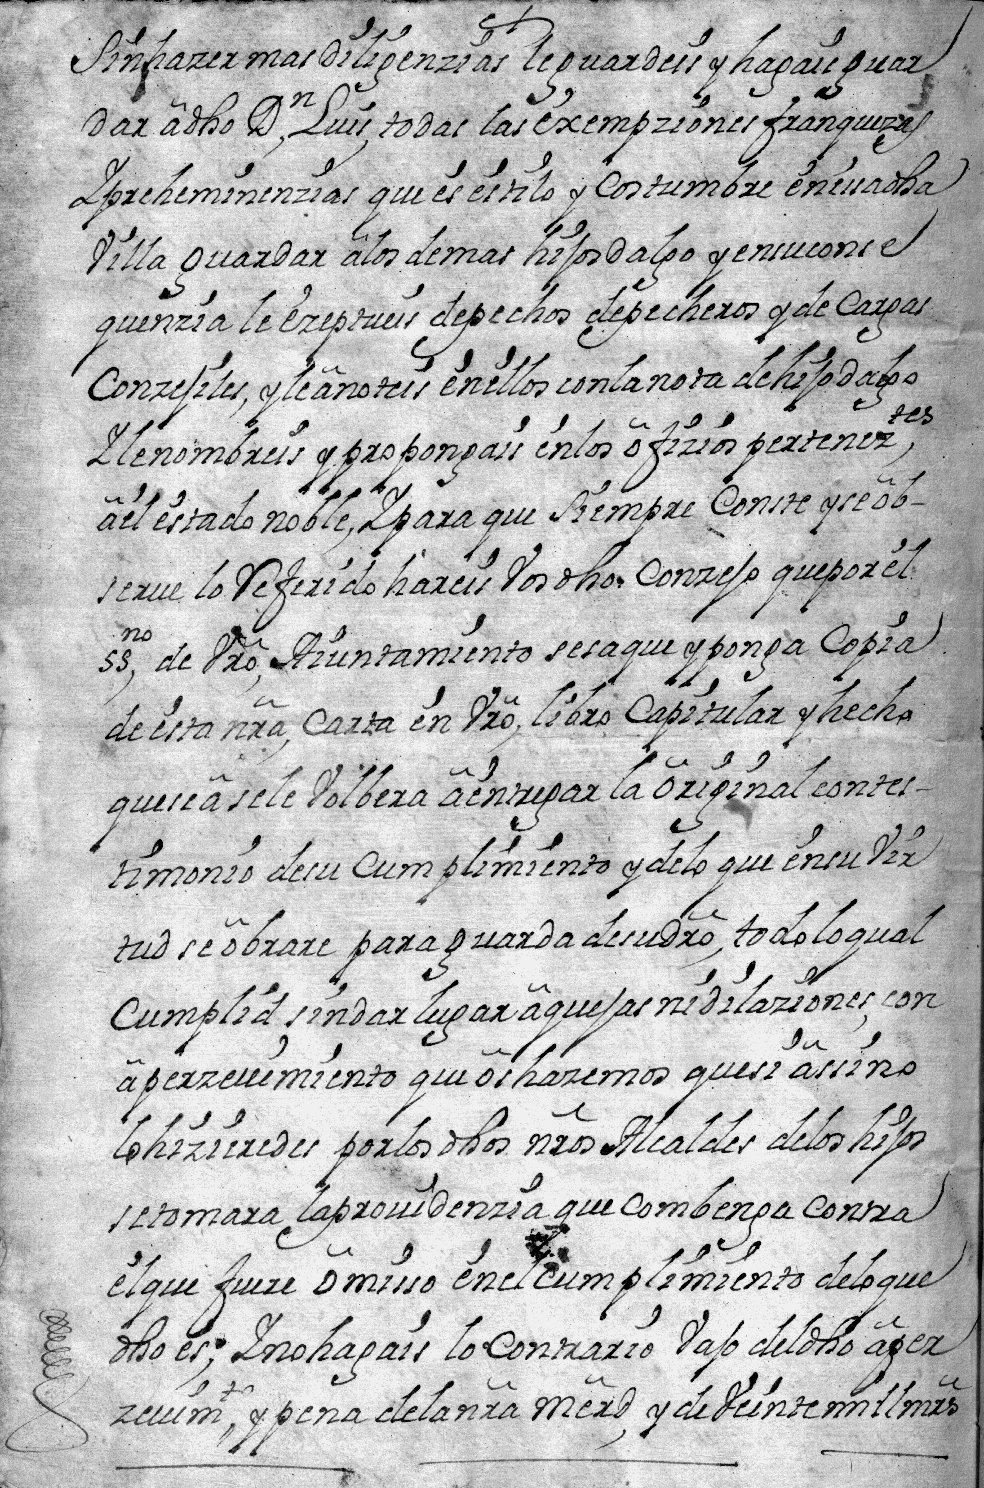 Sin hazer mas diligenzias le guardeis y hagais guar
dar â dho Dn, Luis, todas las exempziones franquezas
Ypreheminenzias que es estilo y Costumbre en eua dha
Villa guardar â los demas hijosdalgo y en su conse
quenzia le exeptueis de pechos de pecheros y de Cargas
Conzejiles, y le ânoteis en ellos con la nota de hijodalgo
Y le nombreis y propongais en los ôfizios pertenez,tes
â el estado noble, Y para que Siempre Conste y se ôb-
serue lo Referido hareis Vos dho. Conzejo que por el
ssno, de Vrô, Aiuntamiento se saque y ponga Copia
de esta nrâ, Carta en Vrô, libro Capitular y hecho
que seâ se le Volbera â entregar la Original con tes-
timonio de su Cumplimiento y de lo que en su Vir
tud se ôbrare para guarda de su drô, todo lo qual
Cumplid sin dar lugar â quejas ni dilaziones, con
âperzeuimiento que ôs hazemos que si âssi no
lo hizieredes por los dhos nrôs Alcaldes de los hijos
se tomara la prouidenzia que combenga contra
el que fuere ômisso en el cumplimiento de lo que
dho es; Y no hagais lo Contrario Vajo del dho âper
zeuimto, y pena de la nrâ mêrd, y de Veinte mill mrs̃